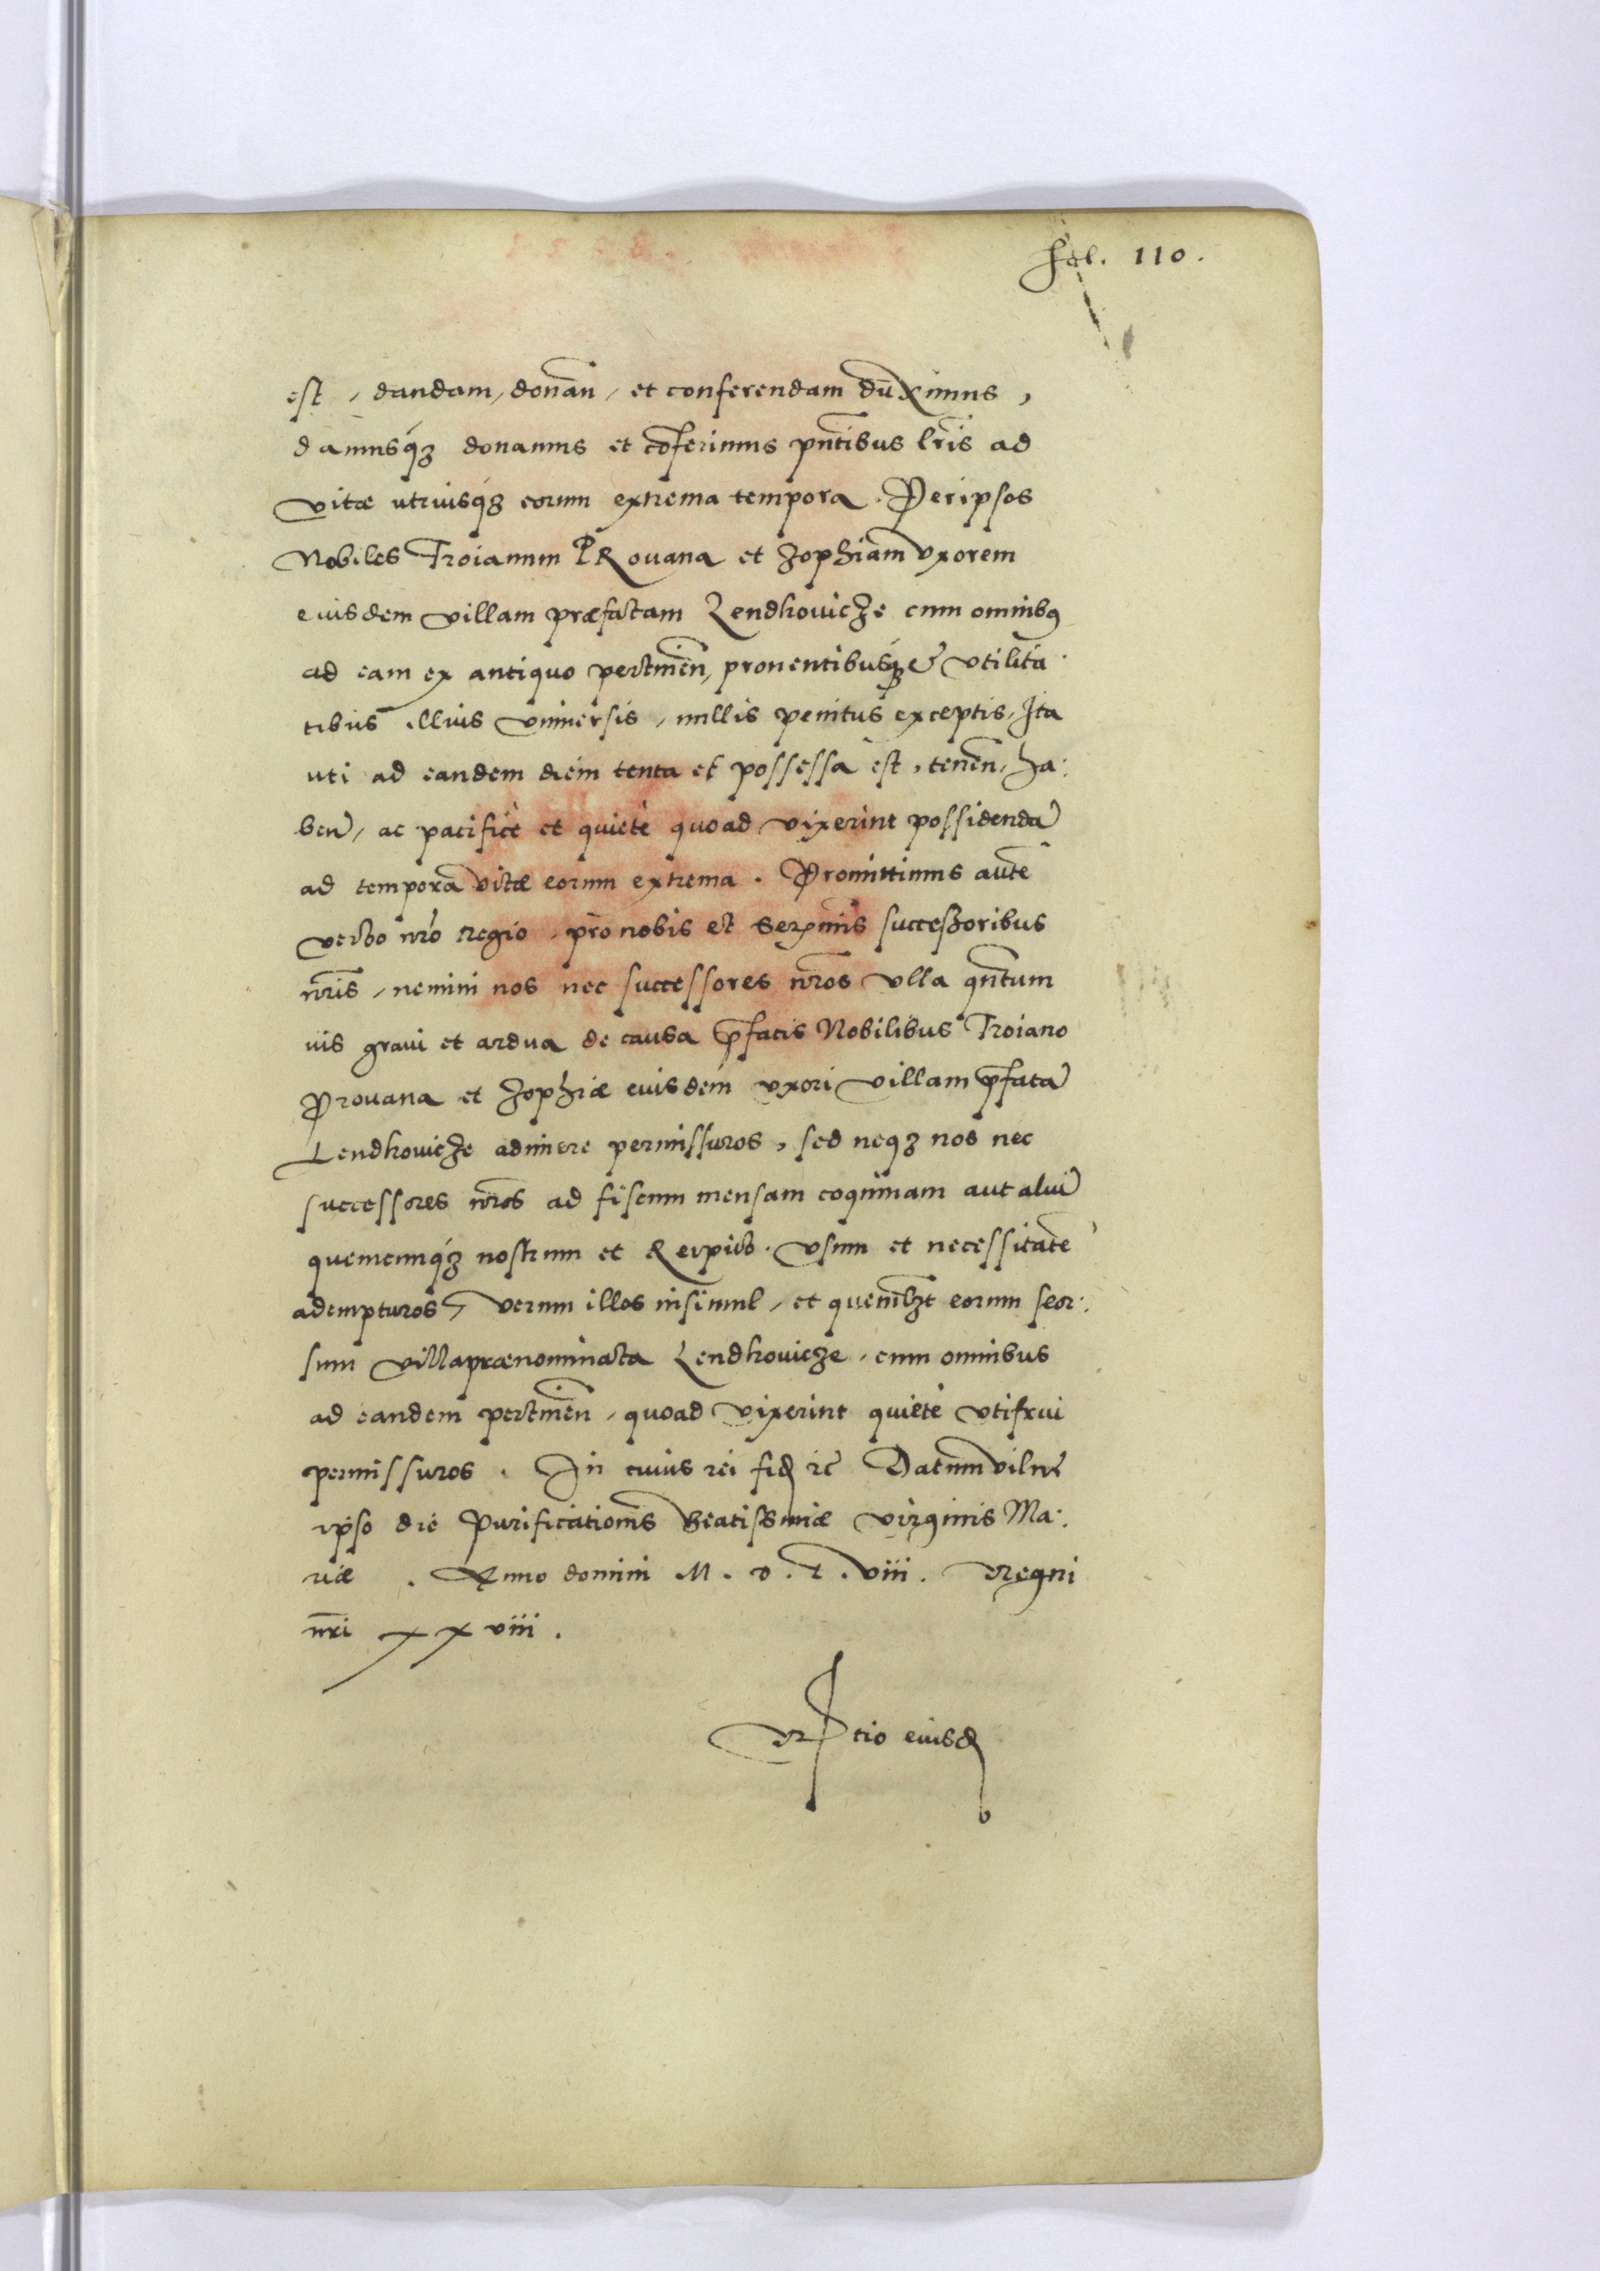 fol. 110.
est, dandam, donan̄, et conferendam duximus,
damusq́ȝ donamus et cōferimus pn̄tibus lr̄is ad
vitæ utriusq́ȝ eorum extrema tempora. Per ipsos
Nobiles Troianum PRovana et Zophiam vxorem
eiusdem villam præfatam Lendkovicze cum omnibꝰ
ad eam ex antiquo pertineñ, proventibusq́ȝ et vtilita:
tibus illius vniuersis, nullis penitus exceptis, Ita
uti ad eandem diem tenta et possessa est, teneñ, ha:
beñ, ac pacificè et quietè quoad vixerint possidendã
ad tempora vitæ eorum extrema. Promittimus autē
verbo nr̄o regio, pro nobis et Serx̃mis successoribus
nr̄is, nemini nos nec successores nr̄os vlla qn̄tum
vis graui et ardua de causa p̄fatis Nobilibus Troiano
Provana et Zophiæ eiusdem vxori villam p̄fatã
Lendkovicze adimere permissuros, sed neqȝ nos nec
successores nr̄os ad fiscum mensam coquinam aut aliũ
quemcunq́ȝ nostrum et Reipub. vsum et necessitatē
adempturos, verum illos insimul, et quemlȝt eorum seor:
sum villa prænominata Lendkovicze, cum omnibus
ad eandem pertineñ, quoad vixerint quietè vtifrui
permissuros. In cuius rei fidꝫ ꝛc̄ Datum vilnæ
ipso die Purificationis Beatissimæ virginis Ma:
riæ. Anno domini M. D. L. viii. Regni
nr̄i xxviii.
R̄tio eiusd